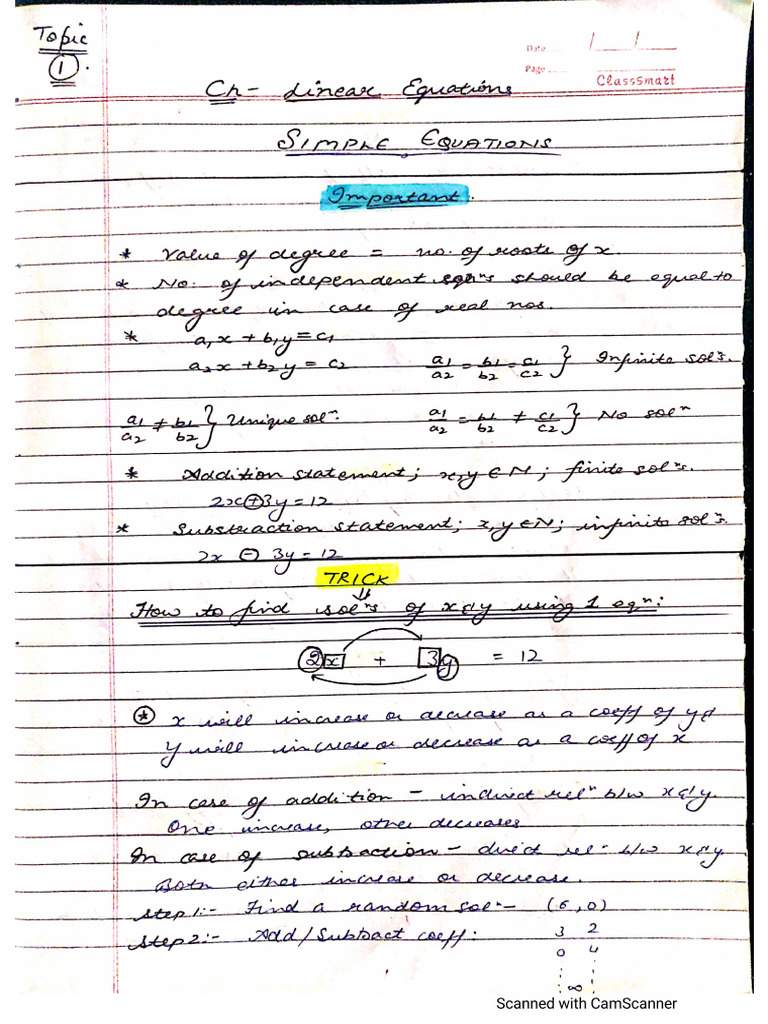 Topic
1.
Date / /
Page
ClassSmart
Ch- Linear Equations
SIMPLE EQUATIONS
Important.
* Value of degree = no. of roots of x.
* No. of independent eqⁿs should be equal to
degree in case of real nos.
* a₁x + b₁y = c₁
a₂x + b₂y = c₂ a₁/a₂ = b₁/b₂ = c₁/c₂ } Infinite solⁿs.
a₁/a₂ ≠ b₁/b₂ } Unique solⁿ. a₁/a₂ = b₁/b₂ ≠ c₁/c₂ } No solⁿ
* Addition statement; x,y ∈ N; finite solⁿs.
2x ⊕ 3y = 12
* Substraction statement; x,y ∈ N; infinite solⁿs.
2x ⊖ 3y = 12
TRICK
⇓
How to find solⁿs of x & y using 1 eqⁿ:
2x + 3y = 12
* x will increase or decrease as a coeff of y &
y will increase or decrease as a coeff of x
In case of addition - indirect relⁿ b/w x & y.
One increase, other decreases
In case of subtraction - direct relⁿ b/w x & y
Both either increase or decrease.
Step 1:- Find a random solⁿ- (6,0)
Step 2:- Add/Subtract coeff: 3 2
0 4
∞
Scanned with CamScanner